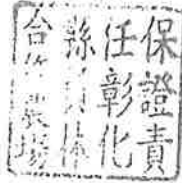 保證責
任彰化
縣　　
合作農場